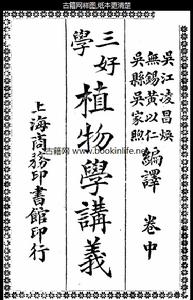 古籍网样图,纸本更清楚
吳江凌昌煥
無錫黃以仁
吳縣吳家煦
編譯
卷中
三好學
植物學講義
古籍网 www.bookinlife.net
上海商務印書館印行